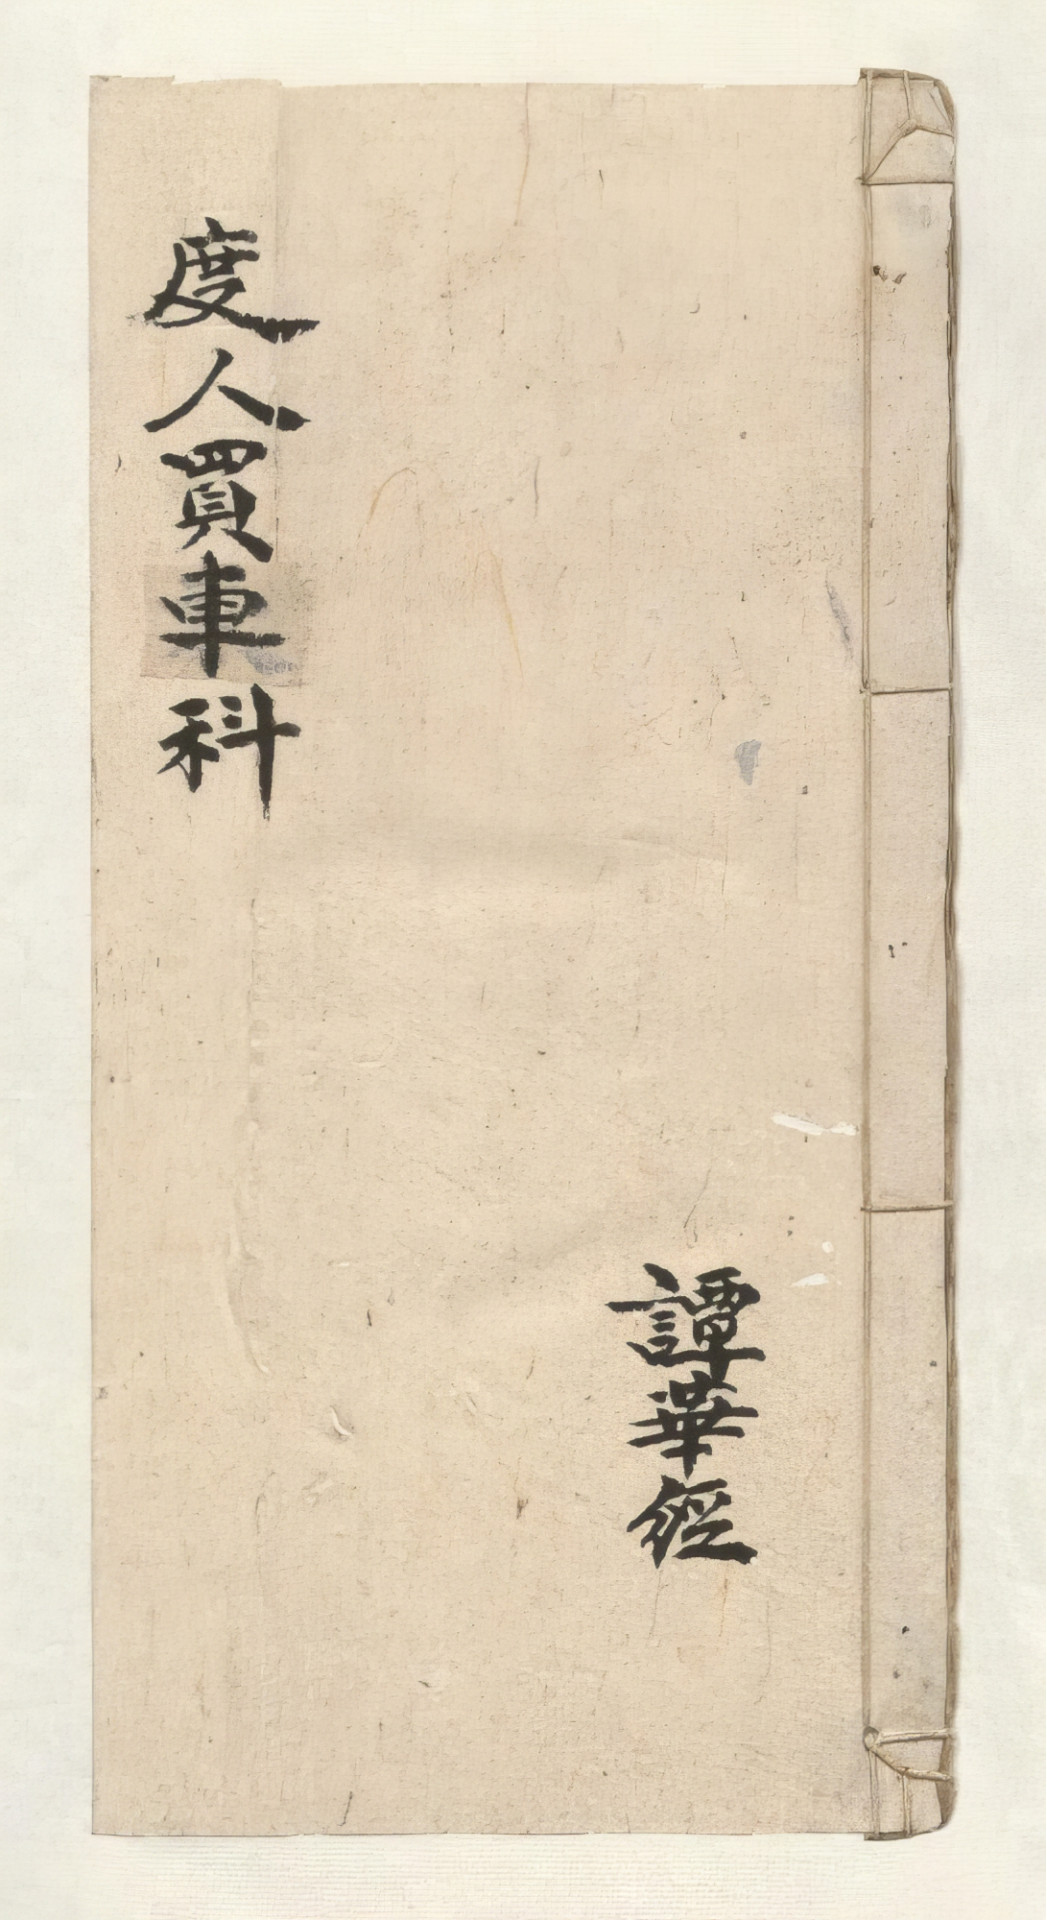 度人買車科
譚華經